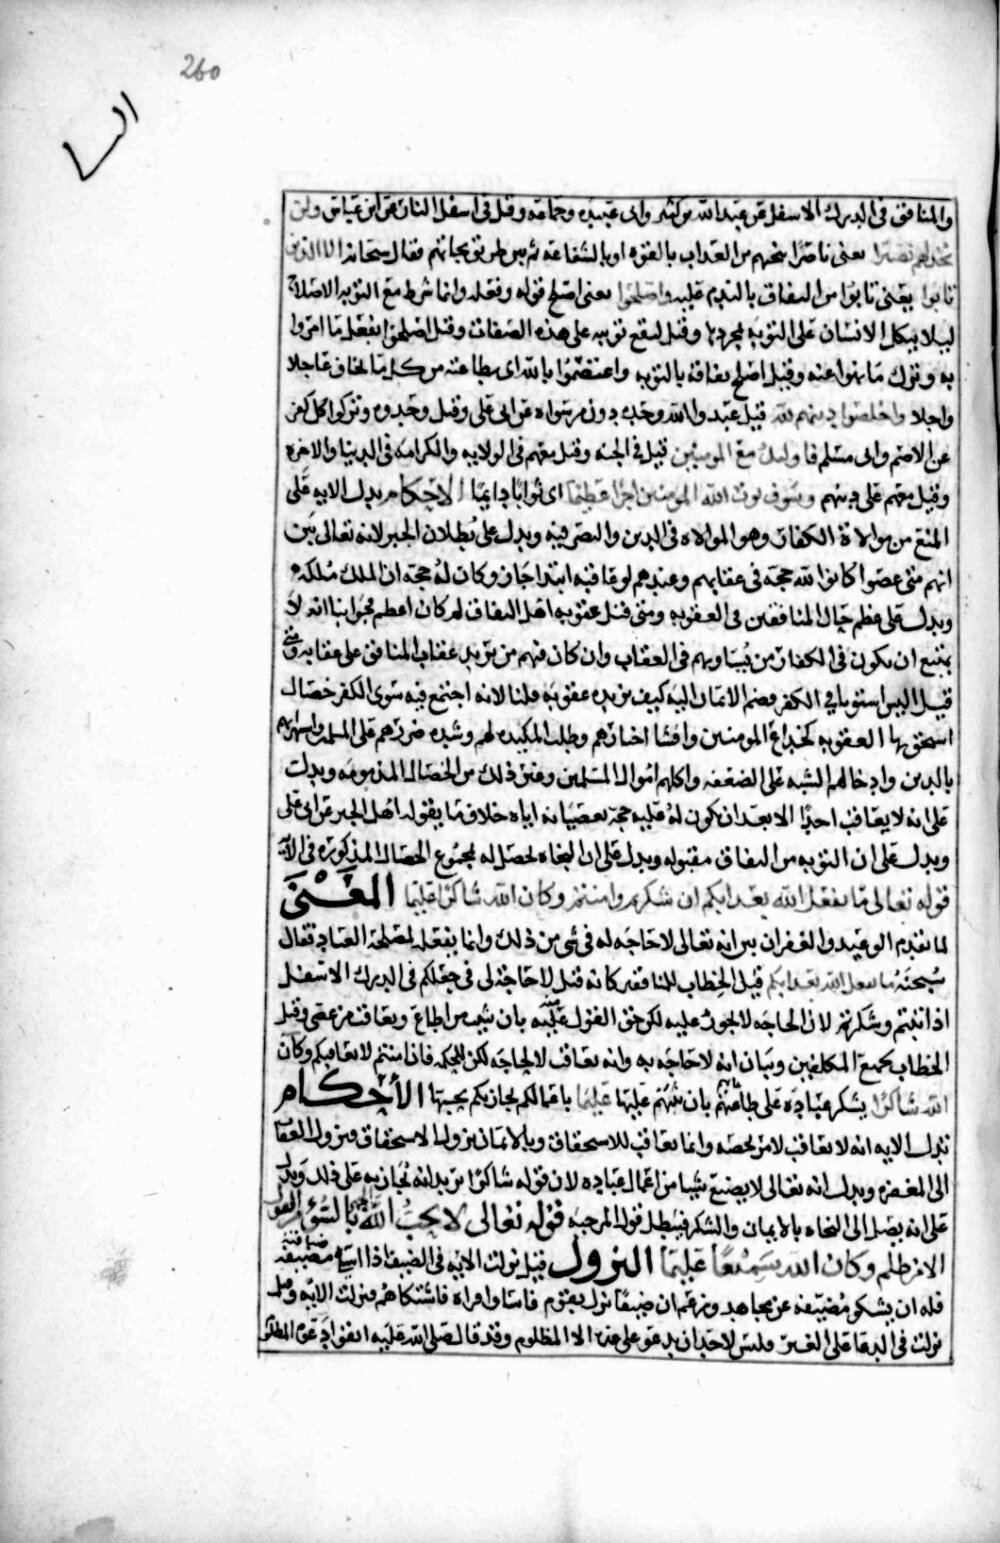 260
الىىا
والمنافق في الدرك الاسفل عن عبدالله بن كثير وابي عبيده وجماعه وقيل في اسفل النار عن ابن عباس ولن
تجد لهم نصيرا يعني ناصرا ينجيهم من العذاب بالقوه او بالشفاعه ثم بين طريق نجاتهم فقال سبحانه الا الذين
تابوا يعني تابوا من النفاق بالندم عليه واصلحوا يعني اصلح قوله وفعله وانما شرط مع التوبه الاصلاح
ليلا يتكل الانسان على التوبه بمجردها وقيل ليقع توبته على هذه الصفات وقيل اصلحوا بفعل ما امروا
به وترك ما نهوا عنه وقيل اصلح نفاقه بالتوبه واعتصموا بالله اي بطاعته من كل ما يخاف عاجلا
واجلا واخلصوا دينهم لله قيل عبدوا الله وحده دون من سواه عن ابي علي وقيل وحدوه وتركوا كل كفر
عن الاصم وابي مسلم فاولئك مع المومنين قيل في الجنه وقيل معهم في الولايه والكرامه في الدنيا والاخره
وقيل معهم على دينهم وسوف يوت الله المومنين اجرا عظيما اي ثوابا دايما الاحكام يدل الايه على
المنع من موالاة الكفار وهو الموالاه في الدين والنصر فيه ويدل على بطلان الجبر لانه تعالى بين
انهم متى عصوا كان لله حجة في عقابهم وعندهم لو عاقبه ابتدا جاز وكان له حجة ان الملك ملكه
ويدل على عظم حال المنافقين في العقوبه ومتى قيل عقوبه اهل النفاق لم كان اعظم فجوابنا انه لا
يمتنع ان يكون في الكفار من يساويهم في العقاب وان كان فيهم من يزيد عقاب المنافق على عقابه ومتى
قيل اليس استويا في الكفر وضم الايمان اليه كيف يزيد عقوبه قلنا لانه اجتمع فيه سوى الكفر خصال
استحق بها العقوبه كخداع المومنين وافشا اخبارهم وطلب المكيده لهم وشده ضررهم على المسلمين واستهزائهم
بالدين وادخالهم الشبه على الضعفه واكلهم اموال المسلمين وغير ذلك من الخصال المذمومه ويدل
على انه لا يعاقب احدا الا بعد ان يكون له عليه حجة بعصيانه اياه خلاف ما يقوله اهل الجبر عن ابي علي
ويدل على ان التوبه من النفاق مقبوله ويدل على ان النجاه تحصل له بمجموع الخصال المذكوره في الايه
قوله تعالى ما يفعل الله بعذابكم ان شكرتم وامنتم وكان الله شاكرا عليما المعنى
لما تقدم الوعيد والغفران بين انه تعالى لا حاجه له في شي من ذلك وانما يفعله لمصلحة العباد فقال
سبحنه ما يفعل الله بعذابكم قيل الخطاب للمنافقين كانه قيل لا حاجة لي في جعلكم في الدرك الاسفل
اذا تبتم وشكرتم لان الحاجه لا يجوز عليه لكن حق القول عليه بان يثيب من اطاع ويعاقب من عصى وقيل
الخطاب بجميع المكلفين وبيان انه لا حاجه به وانه يعاقب لا لحاجه لكن للحكمه فاذا امنتم لا يعاقبكم وكان
الله شاكرا يشكر عباده على طاعتهم بان يثيبهم عليها عليما باعمالكم يجازيكم بحسبها الاحكام
تدل الايه انه لا يعاقب لامر يخصه وانما يعاقب للاستحقاق وبالايمان يزول الاستحقاق فيزول العقاب
الى المغفره ويدل انه تعالى لا يضيع شيا من اعمال عباده لان قوله شاكرا يريد انه يجازيه على ذلك ويدل
على انه يصل الى النجاه بالايمان والشكر فيبطل قول المرجيه قوله تعالى لا يحب الله الجهر بالسوء من القول
الا من ظلم وكان الله سميعا عليما النزول قيل نزلت الايه في الضيف اذا اسا مضيفه ضيافته
فله ان يشكو مضيفه عن مجاهد وزعم ان ضيفا نزل بقوم فاساوا قراه فاشتكاهم فنزلت الايه وقيل
نزلت في الدعا على الغير فليس لاحد ان يدعو على غيره الا المظلوم وقد قال صلى الله عليه اتقوا دعوة المظلوم